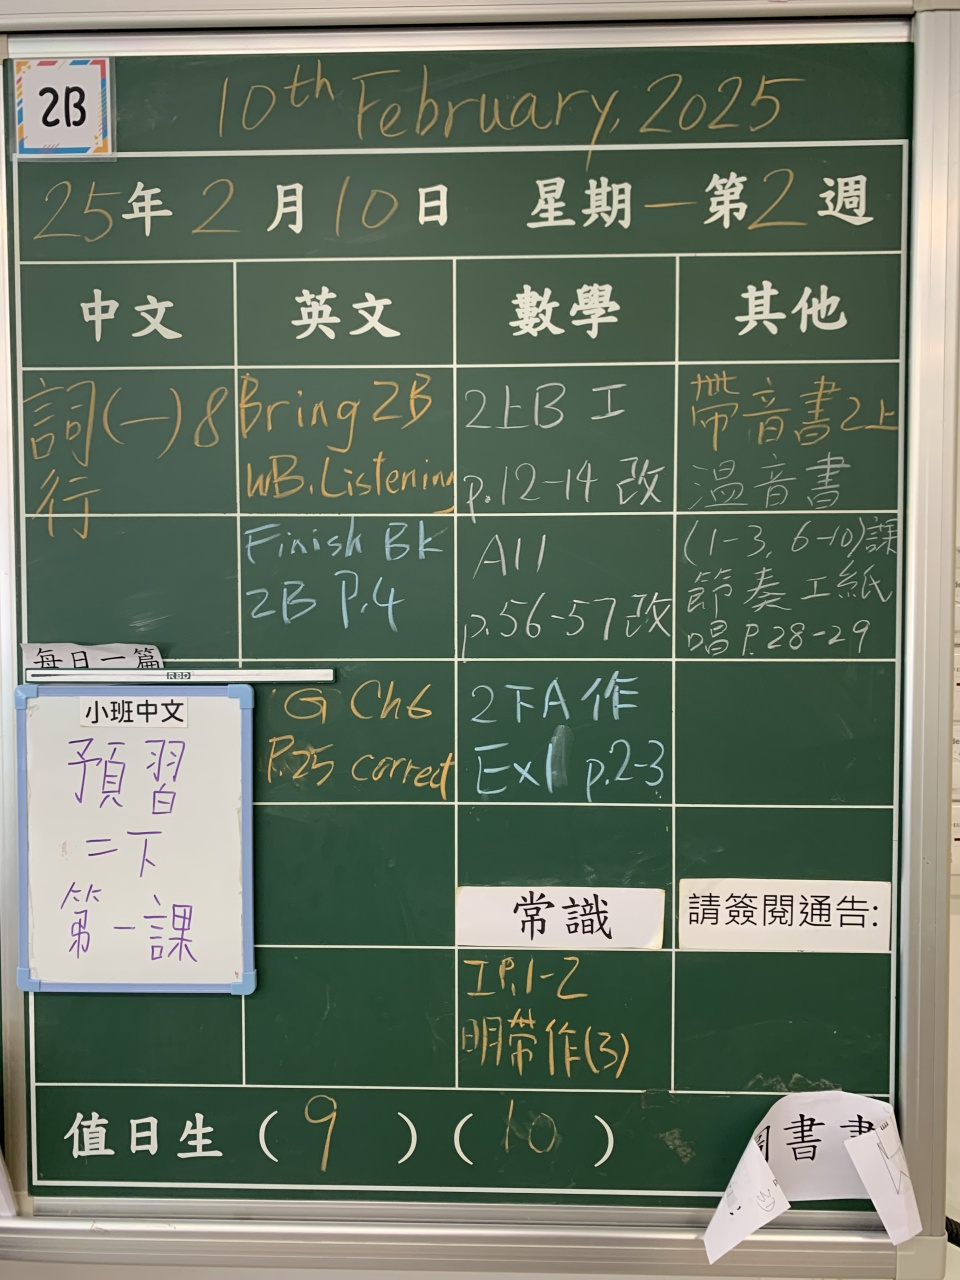 2B
10th February, 2025
25年2月10日 星期一 第2週
中文 英文 數學 其他
詞(一)8
行
每日一篇
小班中文
預習
二下
第一課
Bring 2B
WB. Listening
Finish Bk
2B P.4
G Ch6
P.25 correct
2上B 工
p.12-14 改
A11
p.56-57改
2下A 作
Ex1 p.2-3
常識
工P.1-2
明帶作(3)
帶音書2上
溫音書
(1-3, 6-10)課
節奏工紙
唱 P.28-29
請簽閱通告:
值日生 (9) (10)
書
RBD